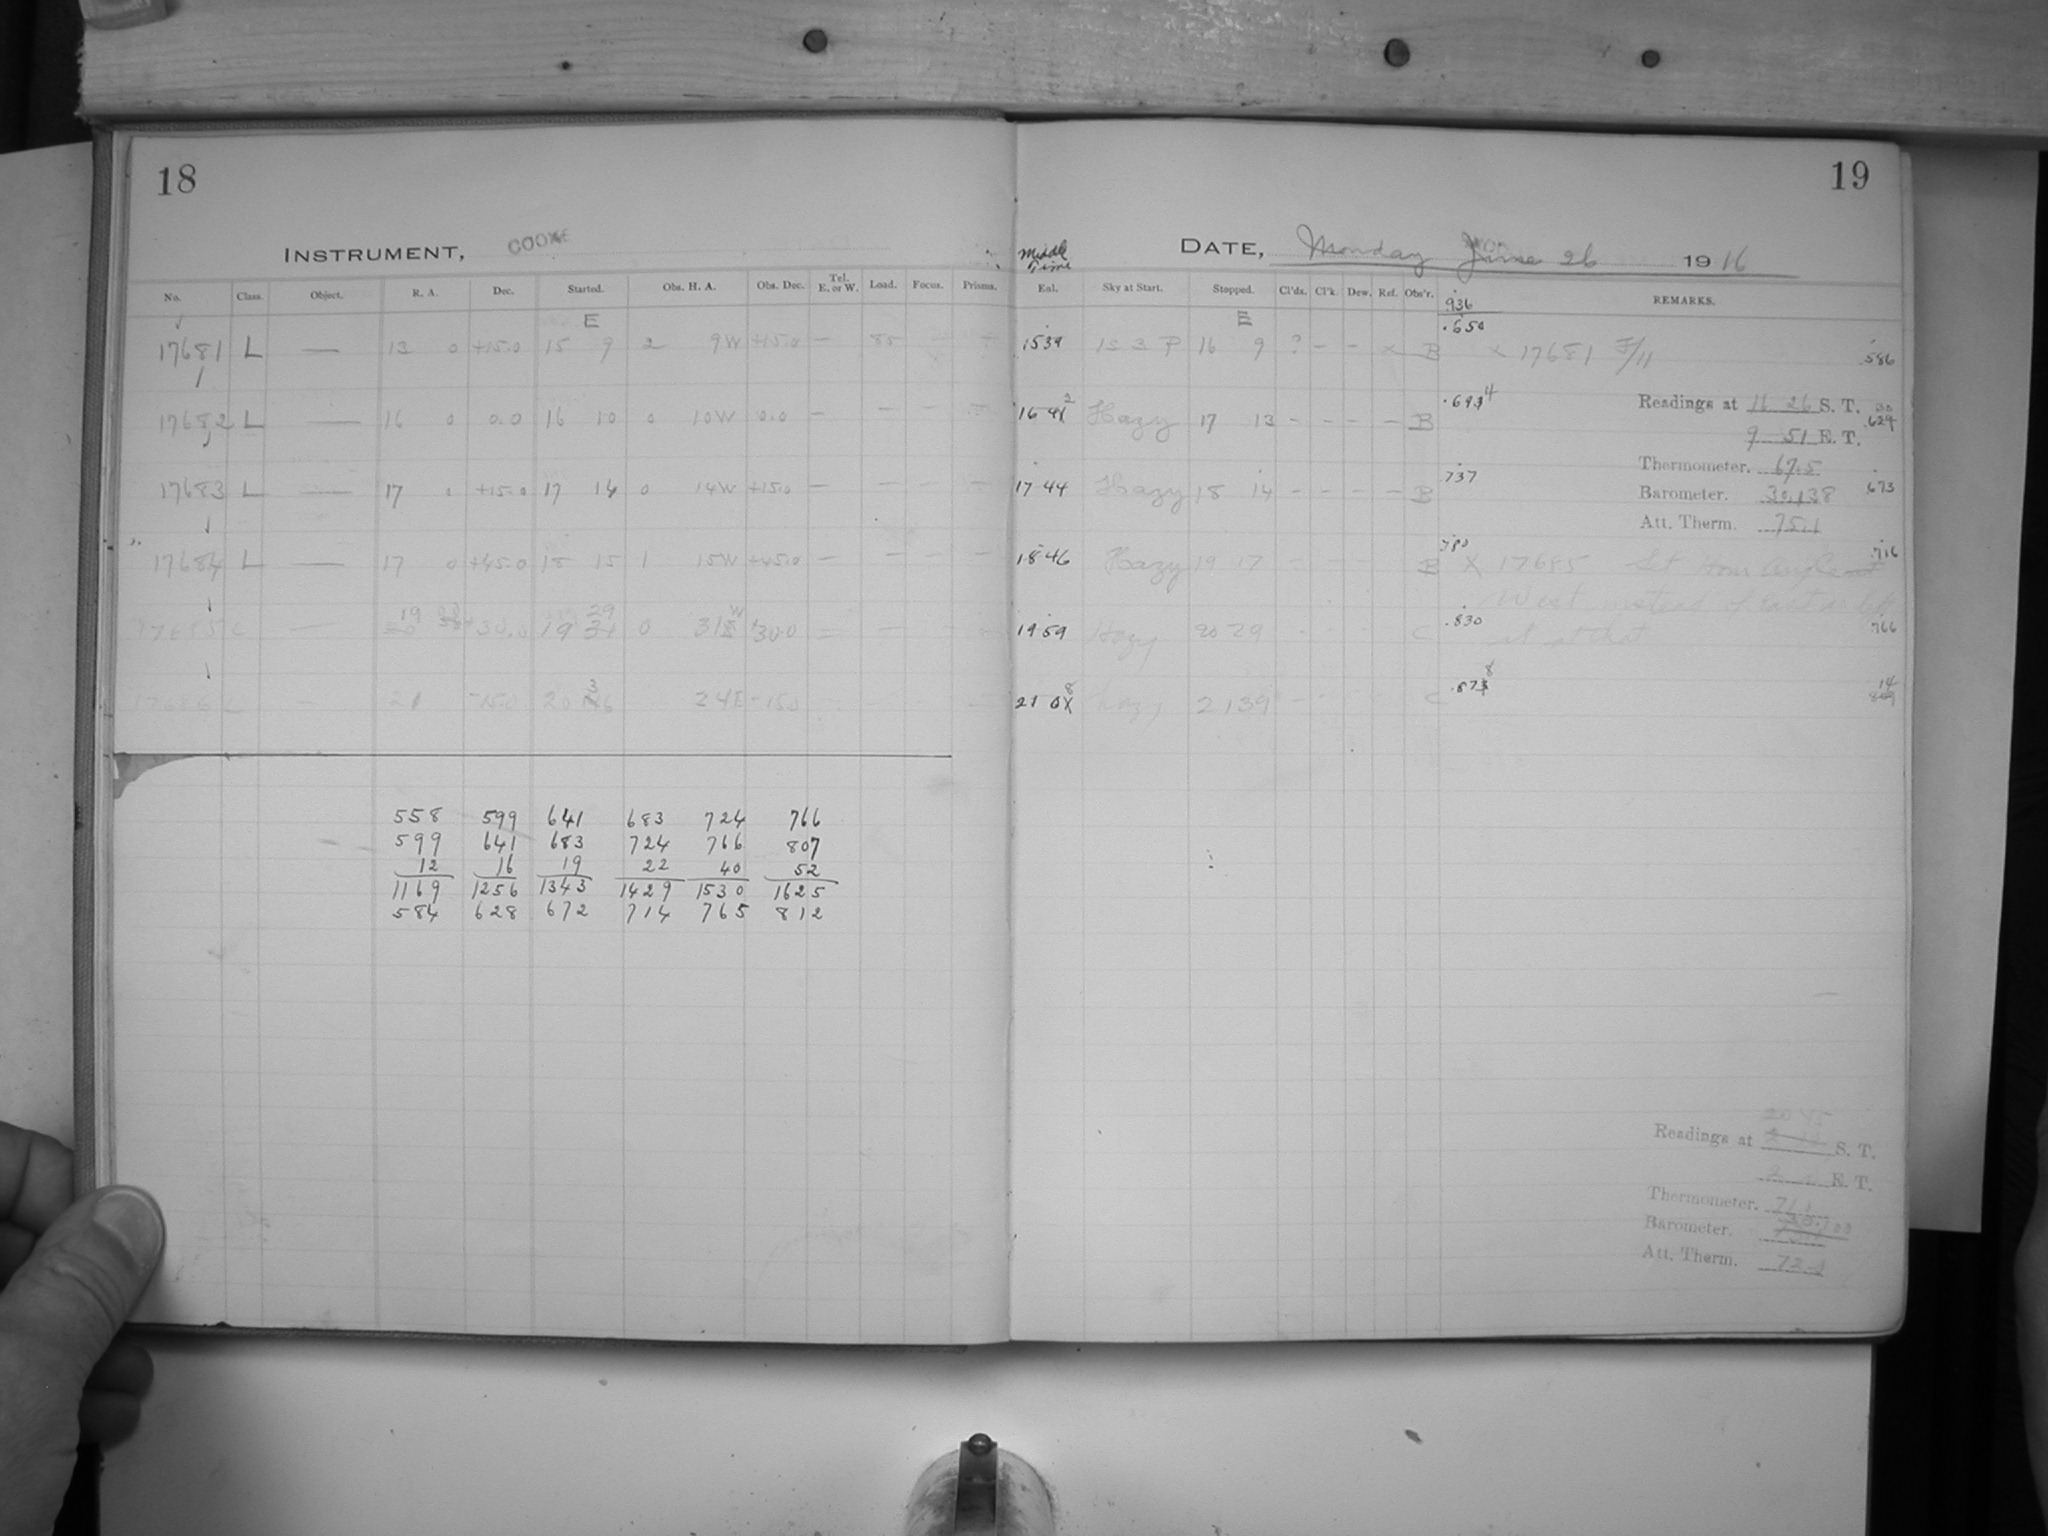 18
INSTRUMENT, COOKE
No. Class. Object. R. A. Dec. Started. Obs. H. A. Obs. Dec. Tel. E. or W. Load. Focus. Prisms.
E
17681 L — 13 0 +15.0 15 9 2 9W +15.0 — 85 — —
17682 L — 16 0 0.0 16 10 0 10W 0.0 — — — —
17683 L — 17 0 +15.0 17 14 0 14W +15.0 — — — —
17684 L — 17 0 +45.0 18 15 1 15W +45.0 — — — —
17685 C — 19 +30.0 19 29 0 31 W +30.0 — — — —
17686 C — 21 -15.0 20 36 24E -15.0
558 599 641 683 724 766
599 641 683 724 766 807
12 16 19 22 40 52
1169 1256 1343 1429 1530 1625
584 628 672 714 765 812
19
DATE, Monday June 26 1916
Middle Time
Enl. Sky at Start. Stopped. Cl'ds. Cl'k. Dew. Ref. Obs'r. REMARKS.
.936
E
15 39 1S 3 P 16 9 ? - - x B .650 x 17681 F/11 .586
16 42 Hazy 17 13 - - - - B .694 .629
Readings at 16 26 S. T.
9 51 E. T.
Thermometer. 67.5
17 44 Hazy 18 14 - - - - B .737 .673
Barometer. 30.138
Att. Therm. 75.1
18 46 Hazy 19 17 - - - B .780 X 17685 Set Hour angle .716
West instead of East
19 59 Hazy 20 29 - - - C .830 .766
21 08 hazy 21 39 - - C .878 814
Readings at 20 45 S. T.
E. T.
Thermometer. 71.1
Barometer. 30.100
Att. Therm.